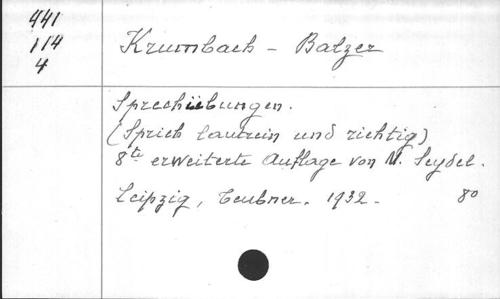 441
114
4
Krumbach - Balzer
Sprechübungen.
(Sprich lautrein und richtig)
8te erweiterte Auflage von M. Seydel.
Leipzig, Teubner. 1932. 80